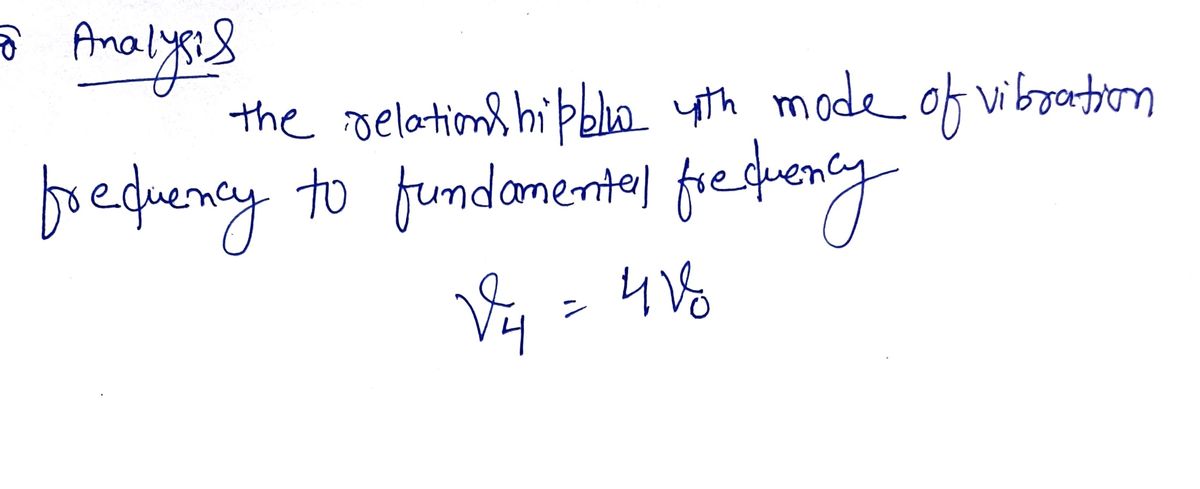 Analysis
the relationship b/w 4th mode of vibration
frequency to fundamental frequency
ν4 = 4ν0